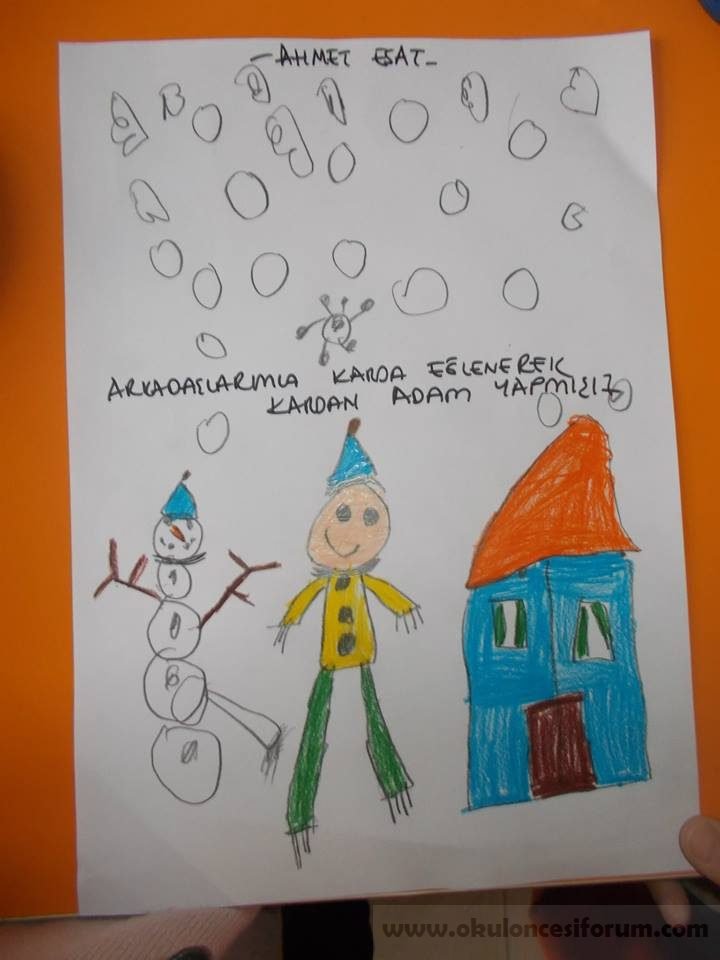 -AHMET ESAT-
ARKADAŞLARIMLA KARDA EĞLENEREK
KARDAN ADAM YAPMIŞIZ
www.okuloncesiforum.com